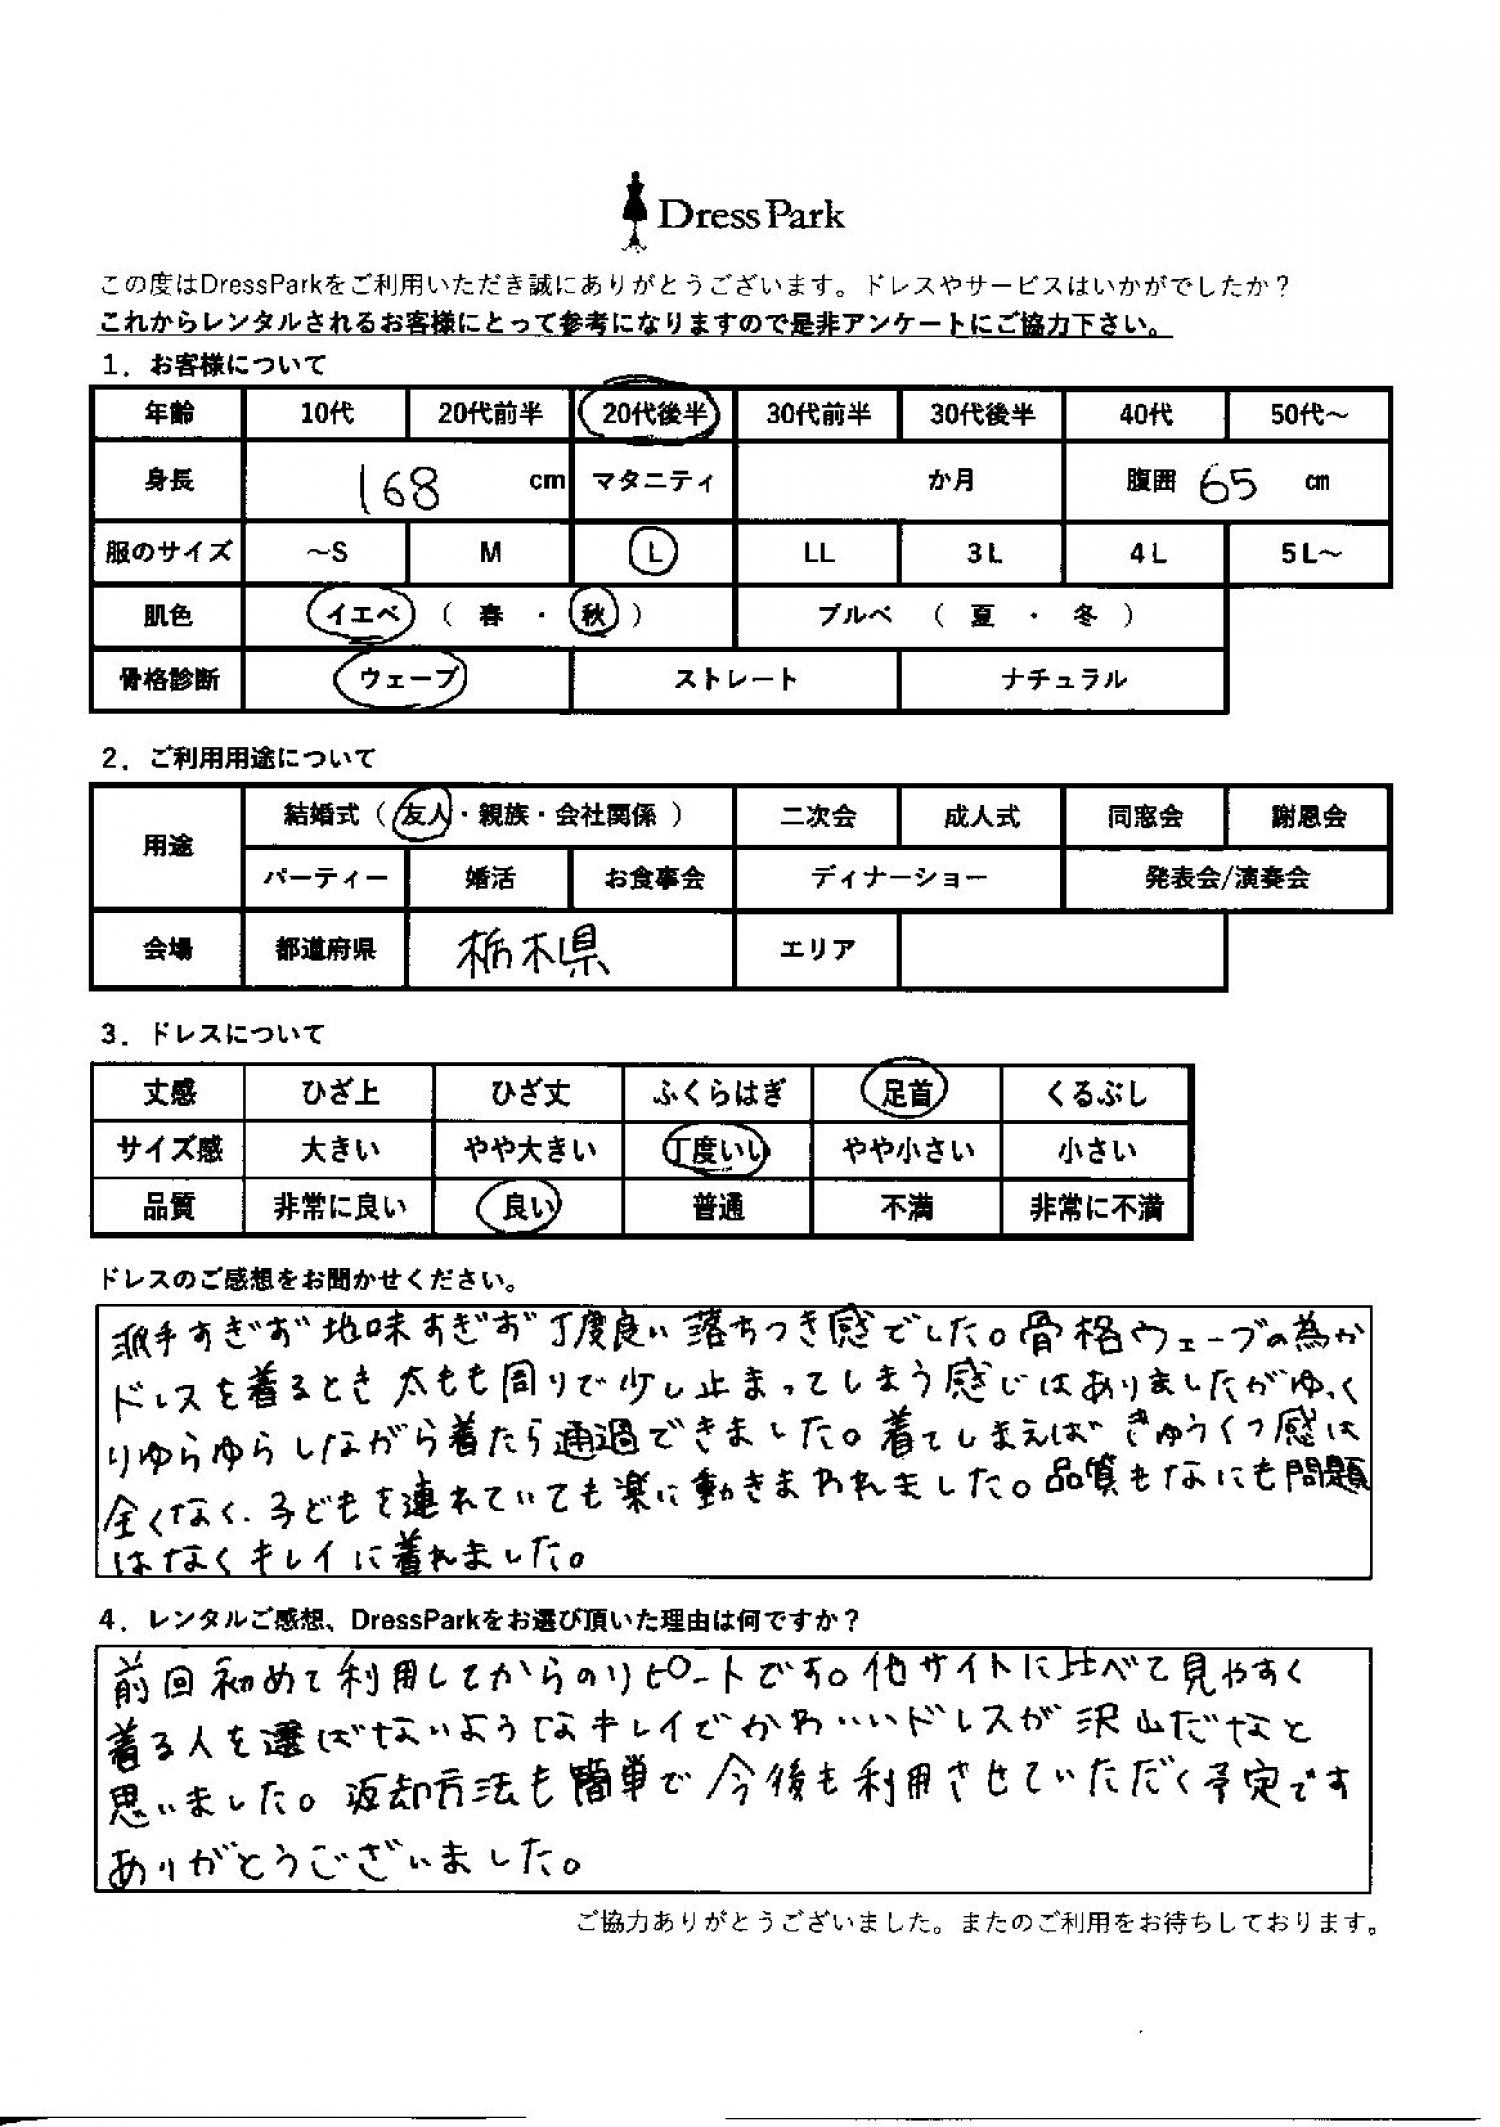 Dress Park
この度はDressParkをご利用いただき誠にありがとうございます。ドレスやサービスはいかがでしたか？
これからレンタルされるお客様にとって参考になりますので是非アンケートにご協力下さい。
1．お客様について
年齢 10代 20代前半 20代後半 30代前半 30代後半 40代 50代～
身長 168 cm マタニティ か月 腹囲 65 cm
服のサイズ ～S M L LL 3L 4L 5L～
肌色 イエベ （ 春 ・ 秋 ） ブルベ （ 夏 ・ 冬 ）
骨格診断 ウェーブ ストレート ナチュラル
2．ご利用用途について
用途 結婚式（ 友人・親族・会社関係 ） 二次会 成人式 同窓会 謝恩会
パーティー 婚活 お食事会 ディナーショー 発表会/演奏会
会場 都道府県 栃木県 エリア
3．ドレスについて
丈感 ひざ上 ひざ丈 ふくらはぎ 足首 くるぶし
サイズ感 大きい やや大きい 丁度いい やや小さい 小さい
品質 非常に良い 良い 普通 不満 非常に不満
ドレスのご感想をお聞かせください。
派手すぎず地味すぎず丁度良い落ちつき感でした。骨格ウェーブの為か
ドレスを着るとき太もも周りで少し止まってしまう感じはありましたがゆっく
りゆらゆらしながら着たら通過できました。着てしまえばきゅうくつ感は
全くなく、子どもを連れていても楽に動きまわれました。品質もなにも問題
はなくキレイに着れました。
4．レンタルご感想、DressParkをお選び頂いた理由は何ですか？
前回初めて利用してからのリピートです。他サイトに比べて見やすく
着る人を選ばないようなキレイでかわいいドレスが沢山だなと
思いました。返却方法も簡単で今後も利用させていただく予定です
ありがとうございました。
ご協力ありがとうございました。またのご利用をお待ちしております。